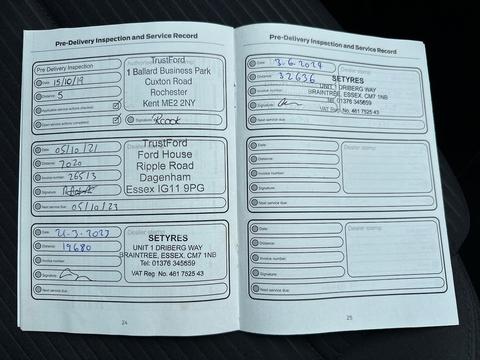 Pre-Delivery Inspection and Service Record
Pre Delivery Inspection
Date: 15/10/19
Distance: 5
Applicable service actions checked
Open service actions completed
Signature:
TrustFord
1 Ballard Business Park
Cuxton Road
Rochester
Kent ME2 2NY
Date: 05/10/21
Distance: 7020
Invoice number: 26513
Signature:
Next service due: 05/10/23
Dealer stamp:
TrustFord
Ford House
Ripple Road
Dagenham
Essex IG11 9PG
Date: 21-3-2023
Distance: 19680
Invoice number:
Signature:
Next service due:
Dealer stamp:
SETYRES
UNIT 1 DRIBERG WAY
BRAINTREE, ESSEX. CM7 1NB
Tel: 01376 345659
VAT Reg No. 461 7525 43
24
Pre-Delivery Inspection and Service Record
Date: 3-6-2024
Distance: 32636
Invoice number:
Signature:
Next service due:
Dealer stamp:
SETYRES
UNIT 1 DRIBERG WAY
BRAINTREE, ESSEX. CM7 1NB
Tel: 01376 345659
VAT Reg. No. 461 7525 43
Date:
Distance:
Invoice number:
Signature:
Next service due:
Dealer stamp:
Date:
Distance:
Invoice number:
Signature:
Next service due:
Dealer stamp:
25